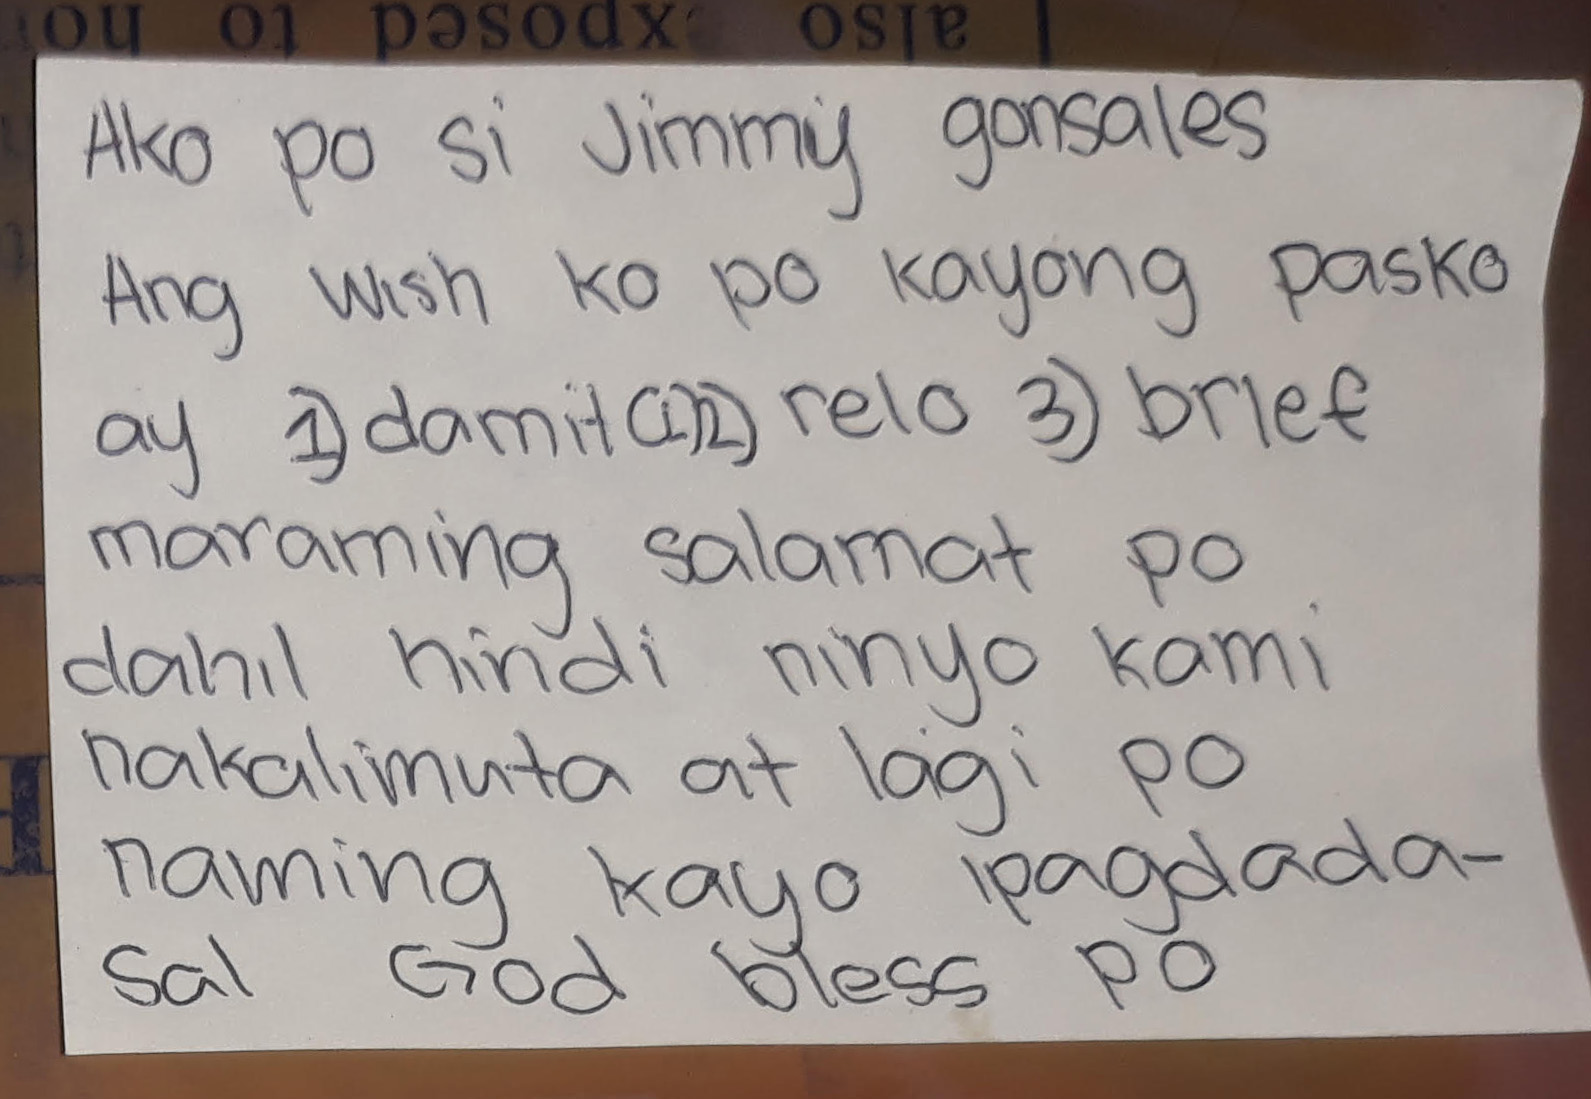 also exposed to
Ako po si Jimmy gonsales
Ang wish ko po kayong pasko
ay 1) damit (L) 2) relo 3) brief
maraming salamat po
dahil hindi ninyo kami
nakalimuta at lagi po
naming kayo ipagdada-
sal God bless po